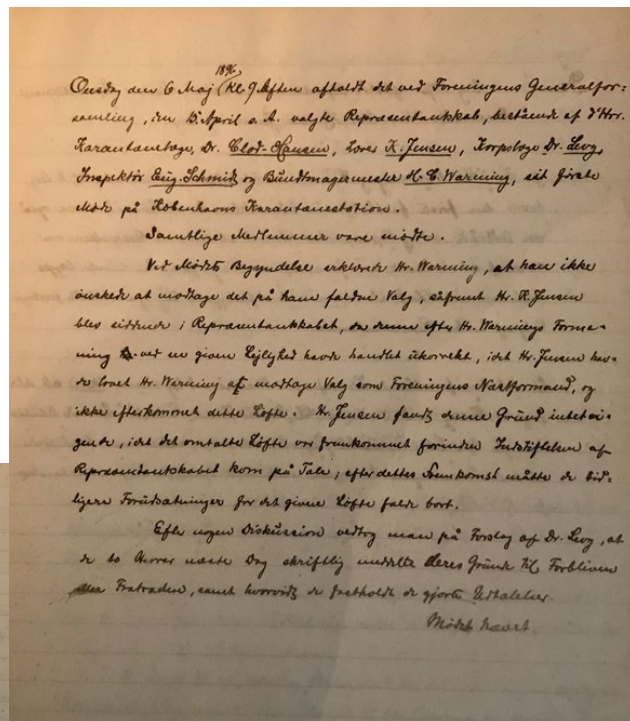 1896
Onsdag den 6 Maj (Kl. 9 Aften afholdt det ved Foreningens Generalfor=
samling, den 15 April s. A. valgte Repræsentantskab, bestående af D'Hrr.
Karantænelæge, Dr. Clod-Hansen, Lærer K. Jensen, Korpslæge Dr. Levy,
Inspektör Eug. Schmidt og Bundtmagermester H. C. Warming, sit første
Møde på Københavns Karantænestation.
Samtlige Medlemmer vare mødte.
Ved Mødets Begyndelse erklærede Hr. Warming, at han ikke
ønskede at modtage det på ham faldne Valg, såfremt Hr. K. Jensen
blev siddende i Repræsentantskabet, da denne efter Hr. Warmings Forme-
ning ved en given Lejlighed havde handlet ukorrekt, idet Hr. Jensen hav-
de lovet Hr. Warming at modtage Valg som Foreningens Næstformand, og
ikke efterkommet dette Løfte. Hr. Jensen fandt denne Grund intetsi-
gende, idet det omtalte Løfte var fremkommet forinden Indstiftelsen af
Repræsentantskabet kom på Tale; efter dettes Fremkomst måtte de tid-
ligere Forudsætninger for det givne Løfte falde bort.
Efter nogen Diskussion vedtog man på Forslag af Dr. Levy, at
de to Herrer næste Dag skriftlig meddelte deres Grunde til Forbliven
eller Fratræden, samt hvorvidt de fastholdt de gjorte Udtalelser.
Mødet hævet.